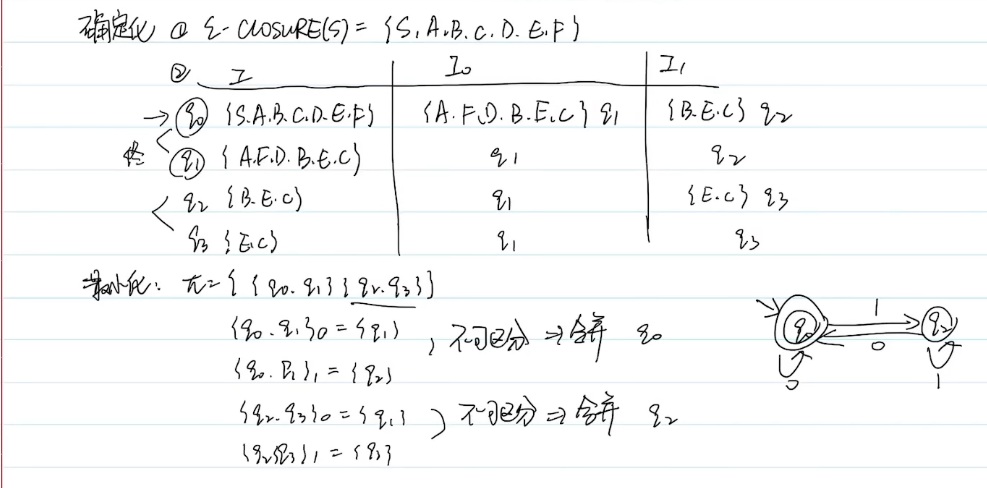 确定化 ① ε-CLOSURE(S) = {S.A.B.C.D.E.F}
② I I₀ I₁
→ q₀ {S.A.B.C.D.E.F} {A.F.D.B.E.C} q₁ {B.E.C} q₂
终 q₁ {A.F.D.B.E.C} q₁ q₂
q₂ {B.E.C} q₁ {E.C} q₃
q₃ {E.C} q₁ q₃
最小化: π={{q₀.q₁}{q₂.q₃}}
{q₀.q₁}₀ = {q₁} , 不可区分 ⇒ 合并 q₀
{q₀.q₁}₁ = {q₂}
{q₂.q₃}₀ = {q₁} ) 不可区分 ⇒ 合并 q₂
{q₂q₃}₁ = {q₃}
q₀ 1 q₂
0
0 1